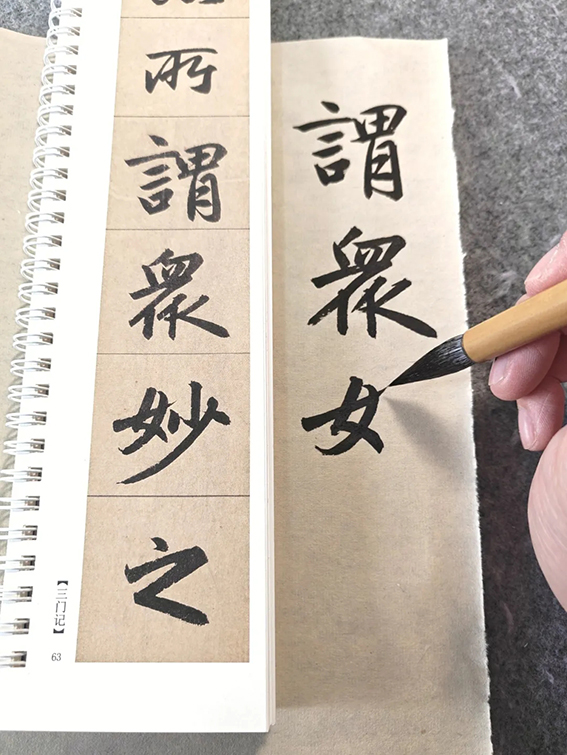 所
謂
眾
妙
之
【三门记】
63
謂
眾
女